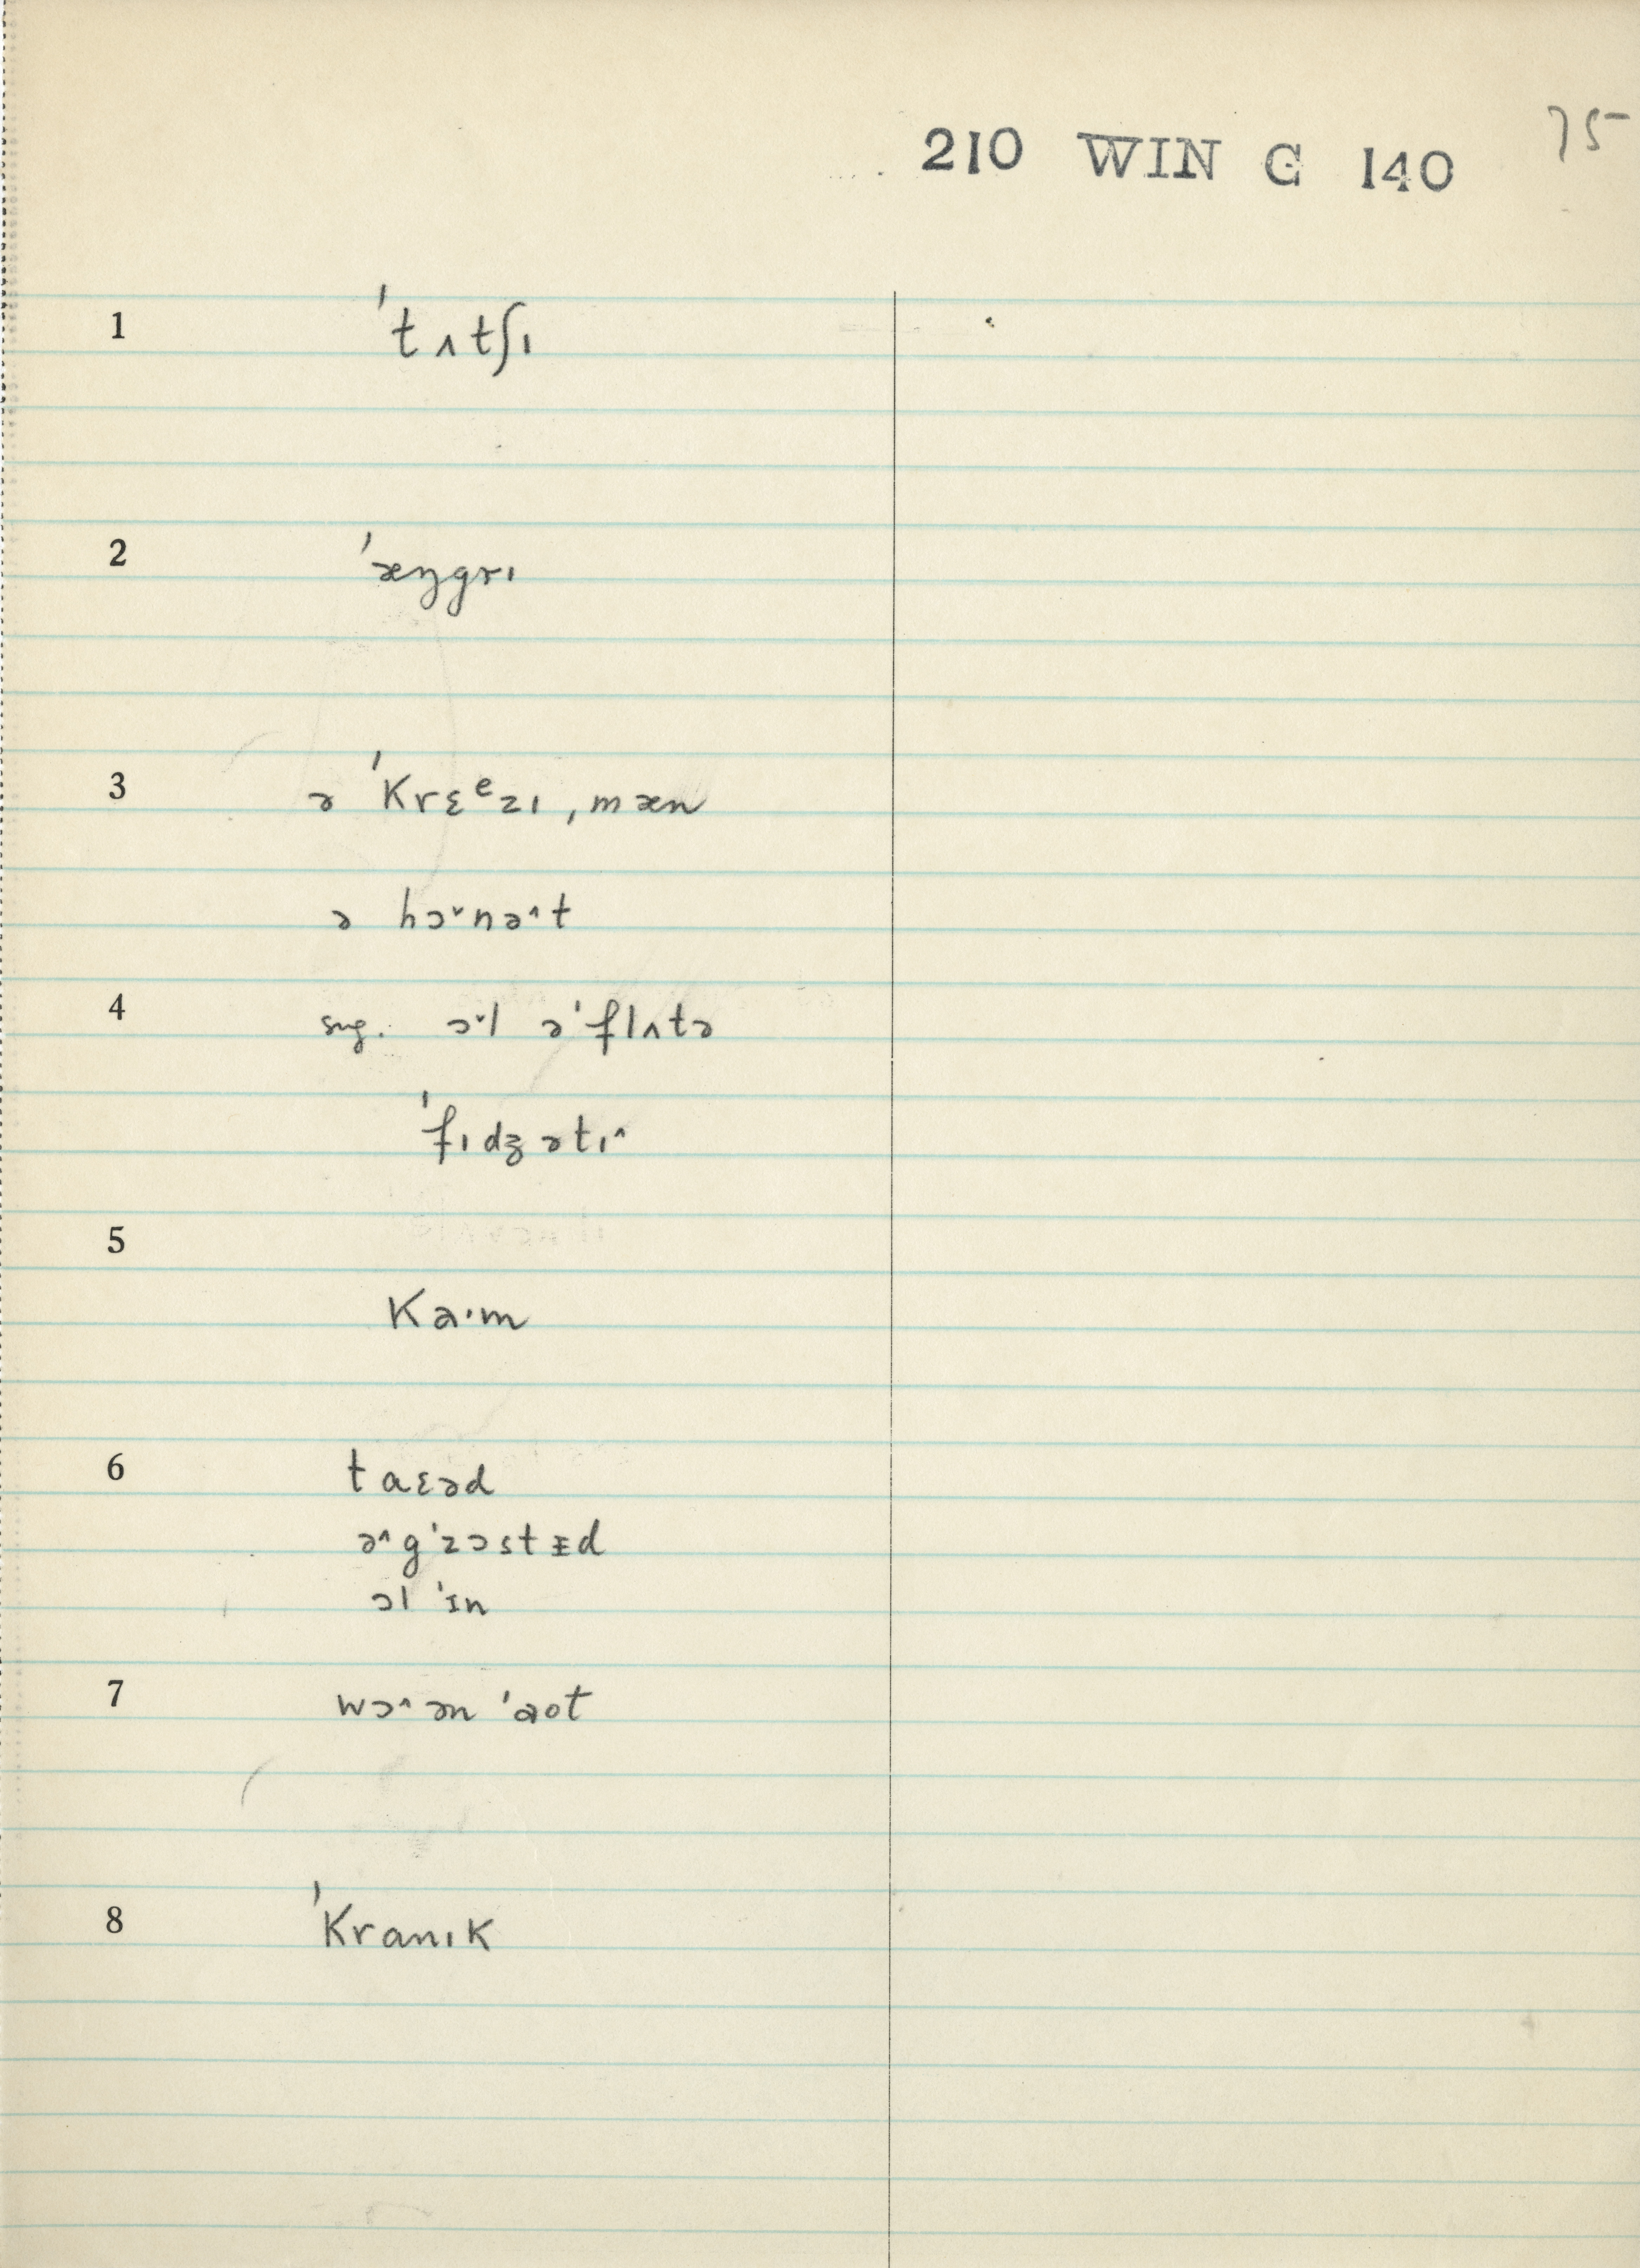 75
210 WIN G 140
1 ˈtʌtʃɪ
2 ˈæŋgrɪ
3 ə ˈkrɛᵉzɪ ˌmæn
ə hɔ˅nə˄t
4 sug. ɔ˅l əˈflʌtə
ˈfɪdʒətɪ˄
5
ka·m
6 taɛəd
ə˄gˈzɔstɪ̵d
ɔl ˈɪn
7 wɔ˄ən ˈaot
8 ˈkranɪk